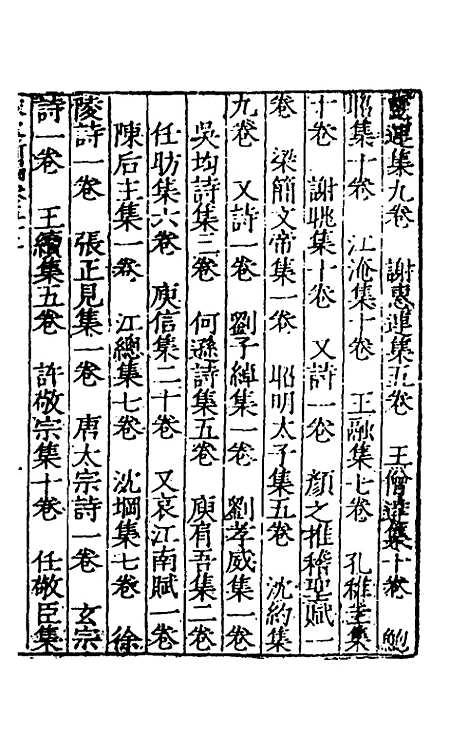 靈運集九卷　謝惠連集五卷　王僧達集十卷　鮑
昭集十卷　江淹集十卷　王融集七卷　孔稚圭集
十卷　謝眺集十卷　又詩一卷　顏之推稽聖賦一
卷　梁簡文帝集一卷　昭明太子集五卷　沈約集
九卷　又詩一卷　劉子綽集一卷　劉孝威集一卷
吳均詩集三卷　何遜詩集五卷　庾肩吾集二卷
任昉集六卷　庾信集二十卷　又哀江南賦一卷
陳后主集一卷　江總集七卷　沈炯集七卷　徐
陵詩一卷　張正見集一卷　唐太宗詩一卷　玄宗
詩一卷　王績集五卷　許敬宗集十卷　任敬臣集